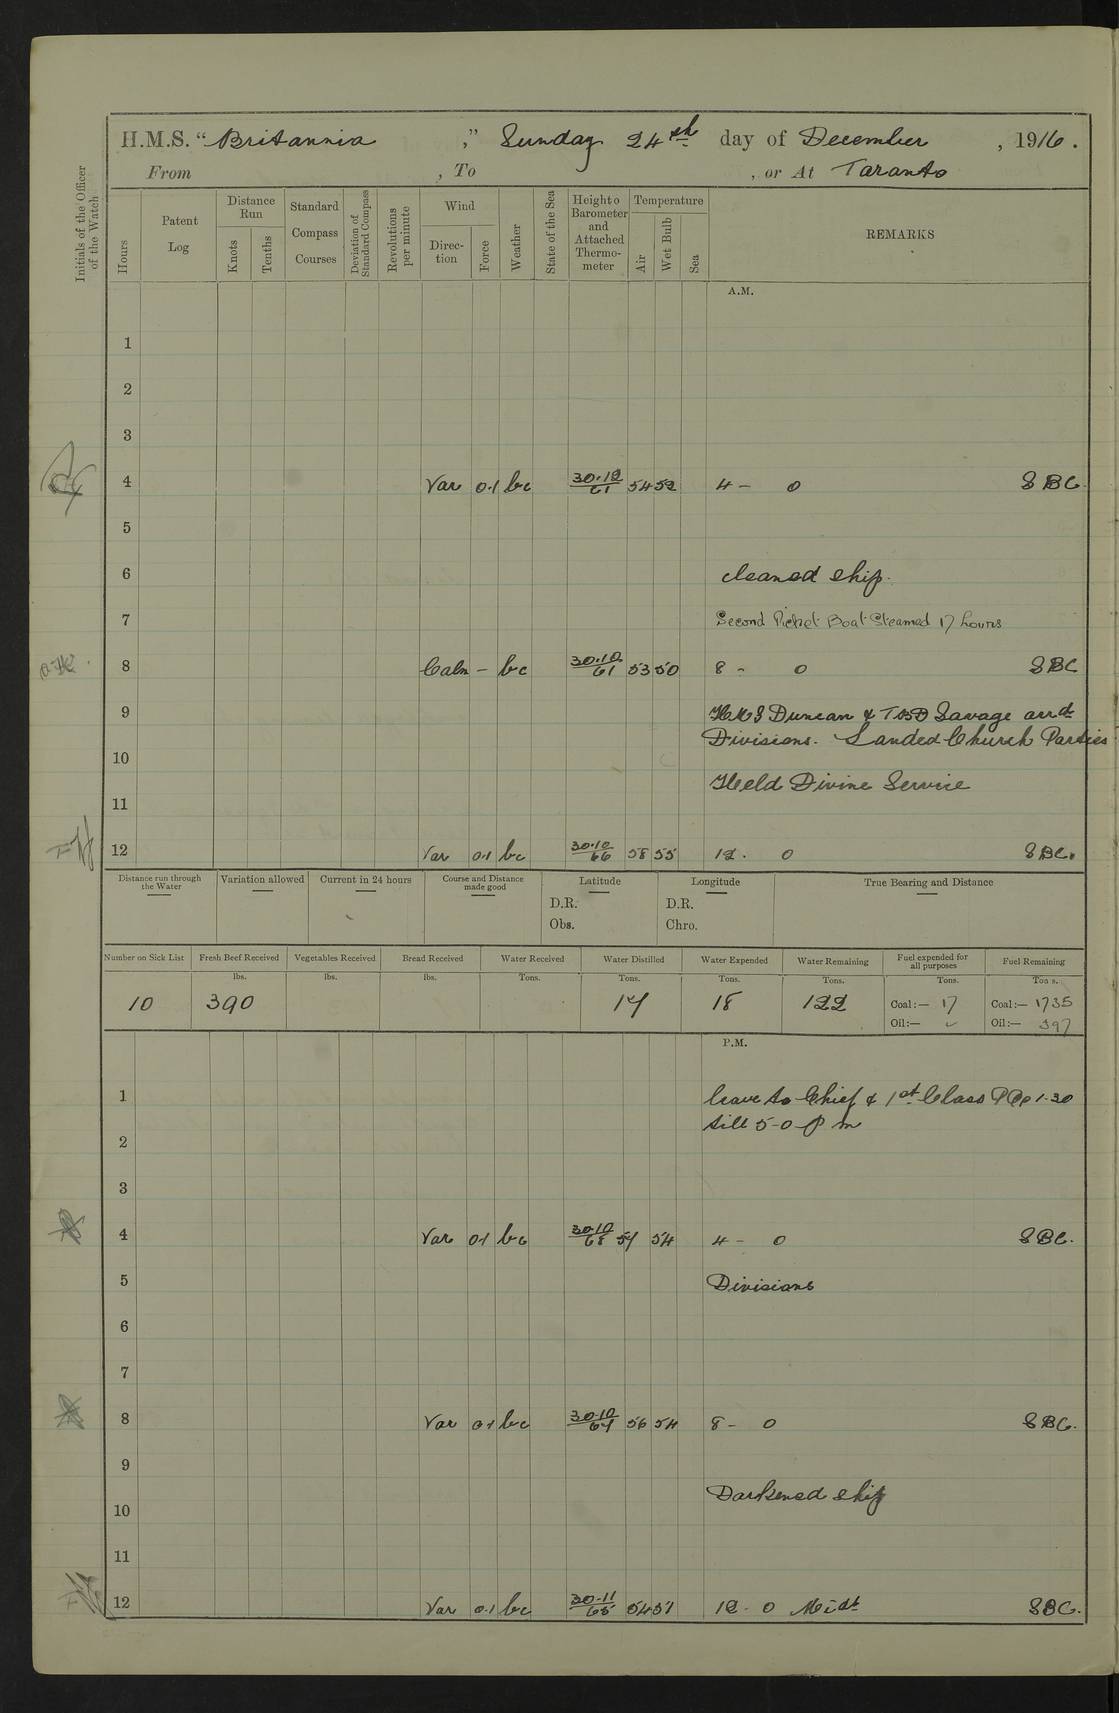 H.M.S. "Britannia," Sunday 24th day of December, 1916.
From , To , or At Taranto
Initials of the Officer of the Watch
Hours
Patent Log
Distance Run
Knots
Tenths
Standard Compass Courses
Deviation of Standard Compass
Revolutions per minute
Wind
Direc-tion
Force
Weather
State of the Sea
Height o Barometer and Attached Thermo-meter
Temperature
Air
Wet Bulb
Sea
REMARKS
A.M.
1
2
3
4 Var 0.1 bc 30.12/61 54 52 4 - 0 SBC
5
6 cleaned ship.
7 Second Picket Boat Steamed 17 hours
8 Calm - bc 30.10/61 53 50 8 - 0 SBC
9 HMS Duncan & TBD Savage arrd
Divisions. Landed Church Parties
10
Held Divine Service
11
12 Var 0.1 bc 30.10/66 58 55 12. 0 SBC.
Distance run through the Water
Variation allowed
Current in 24 hours
Course and Distance made good
Latitude
D.R.
Obs.
Longitude
D.R.
Chro.
True Bearing and Distance
Number on Sick List
Fresh Beef Received
Vegetables Received
Bread Received
Water Received
Water Distilled
Water Expended
Water Remaining
Fuel expended for all purposes
Fuel Remaining
lbs. lbs. lbs. Tons. Tons. Tons. Tons. Tons. Tons.
10 390 17 18 122 Coal:— 17 Coal:— 1735
Oil:— Oil:— 397
P.M.
1 leave to Chief & 1st Class POs 1.30
till 5-0 p m
2
3
4 Var 0.1 bc 30.10/68 57 54 4 - 0 SBC.
5 Divisions
6
7
8 Var 0.1 bc 30.10/67 56 54 8 - 0 SBC.
9
Darkened ship
10
11
12 Var 0.1 bc 30.11/65 54 51 12 - 0 Midt SBC.